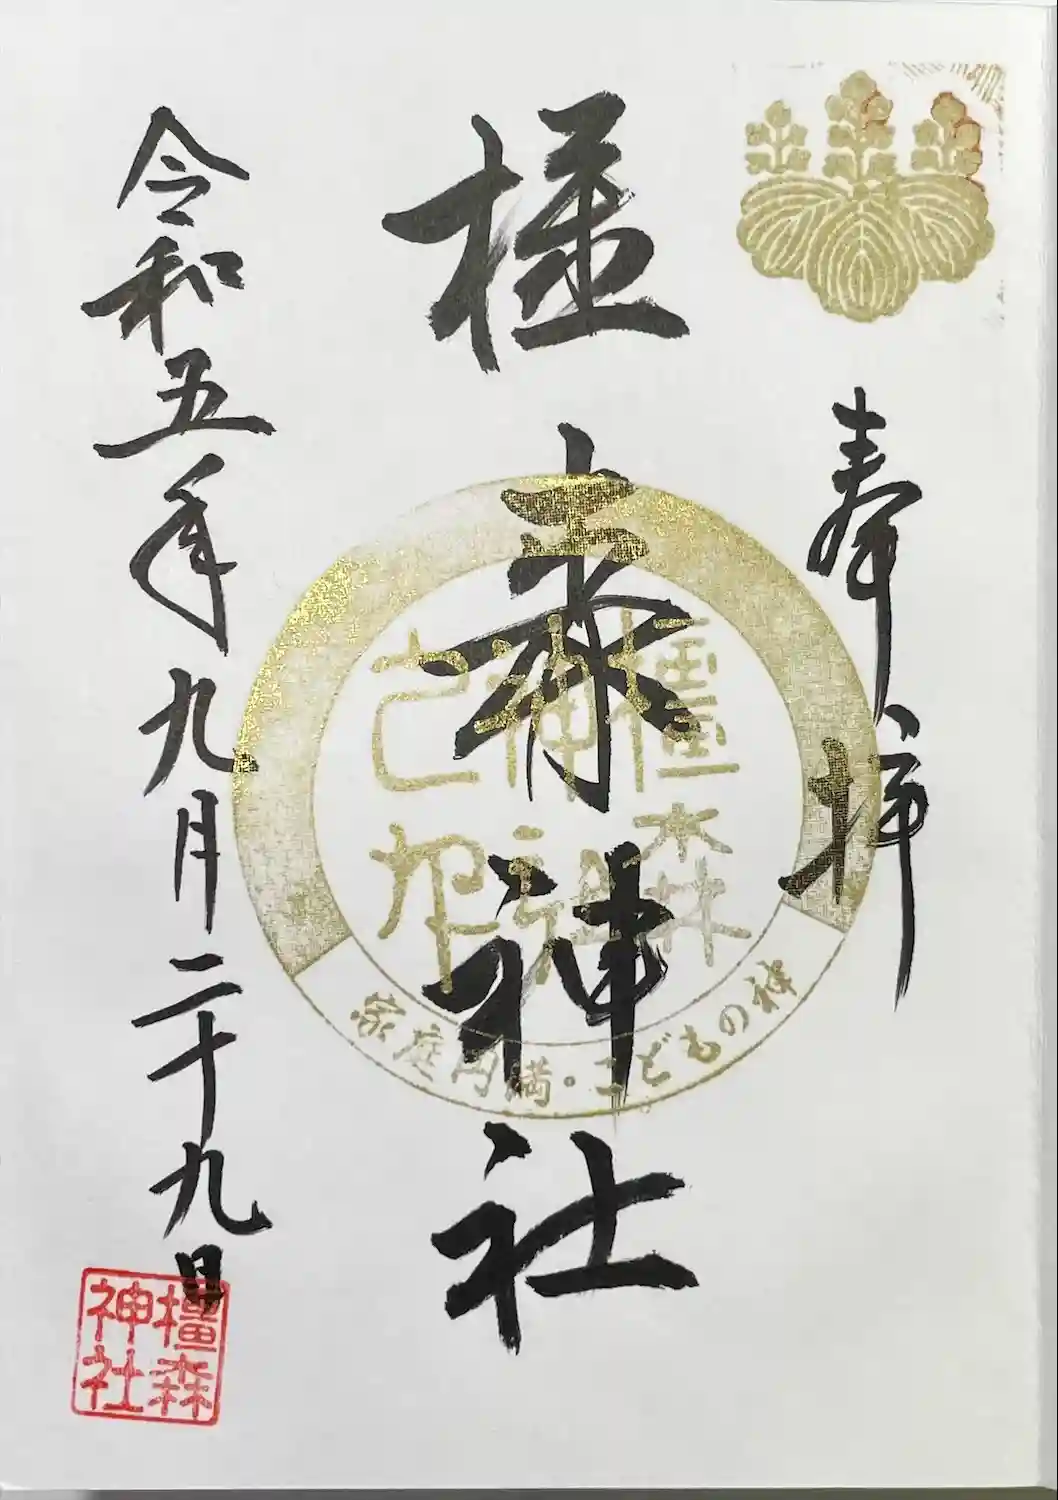 奉拝
橿森神社
橿森
神社
家庭円満・こどもの神
令和五年九月二十九日
橿森
神社